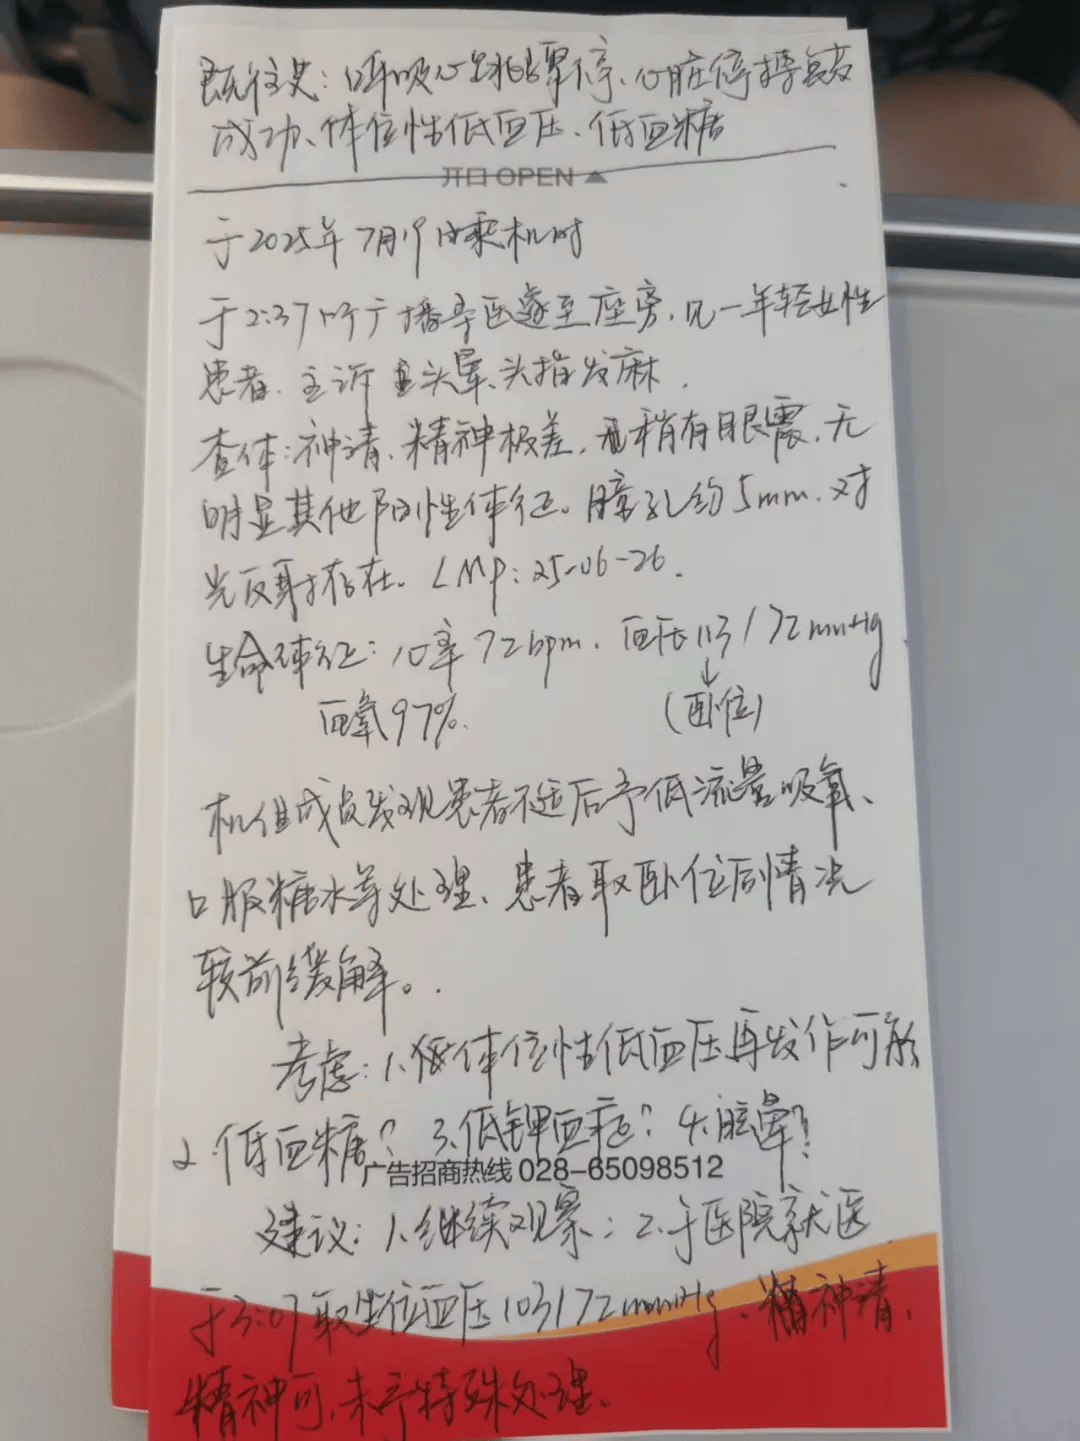 既往史：呼吸心跳骤停、心脏停搏复苏
成功、体位性低血压、低血糖
开口 OPEN
于2025年7月19日乘机时
于2:37听广播寻医遂至座旁，见一年轻女性
患者，主诉头晕、头指发麻．
查体：神清，精神极差，稍有眼震，无
明显其他阳性体征。瞳孔约5mm．对
光反射存在。LMP：25-06-26．
生命体征：心率72bpm．血压113/72mmHg．
血氧97%．
（卧位）
机组成员发现患者不适后予低流量吸氧、
口服糖水等处理，患者取卧位后情况
较前缓解。
考虑：1.体位性低血压再发作可能
2.低血糖？ 3.低钾血症？ 4.眩晕？
广告招商热线 028-65098512
建议：1.继续观察；2.于医院就医
于3:07取坐位血压103/72mmHg、精神清，
精神可，未予特殊处理．